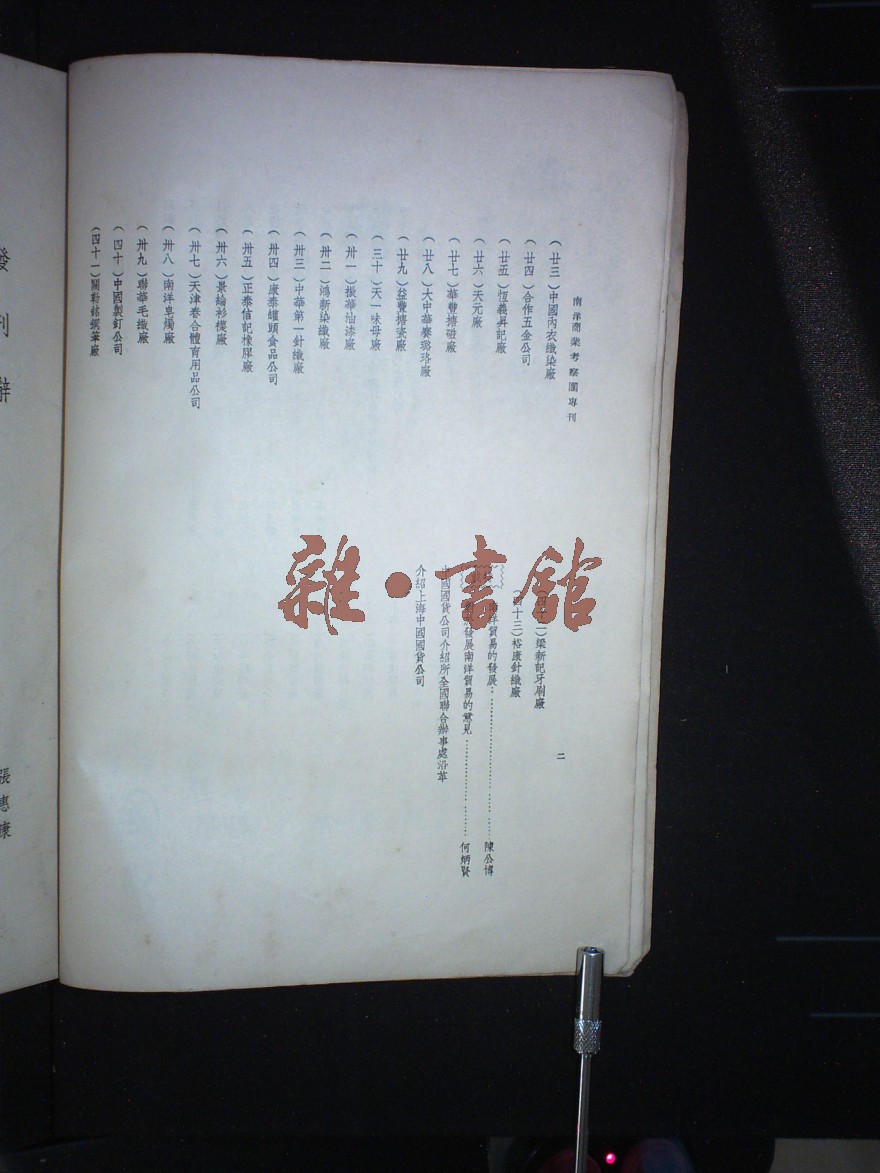 南洋商業考察團專刊
(廿三)中國內衣織染廠
(廿四)合作五金公司
(廿五)恆義昇記廠
(廿六)天元廠
(廿七)華豐搪磁廠
(廿八)大中華賽璐珞廠
(廿九)益豐搪瓷廠
(三十)天一味母廠
(卅一)振華油漆廠
(卅二)鴻新染織廠
(卅三)中華第一針織廠
(卅四)康泰罐頭食品公司
(卅五)正泰信記橡膠廠
(卅六)景綸衫襪廠
(卅七)天津春合體育用品公司
(卅八)南洋皂燭廠
(卅九)聯華毛織廠
(四十)中國製釘公司
(四十一)關勒銘鋼筆廠
二)梁新記牙刷廠
(四十三)裕康針織廠
南洋貿易的發展 陳公博
發展南洋貿易的意見 何炳賢
中國國貨公司介紹所全國聯合辦事處沿革
介紹上海中國國貨公司
二
雜·書館
發刊辭
張惠康